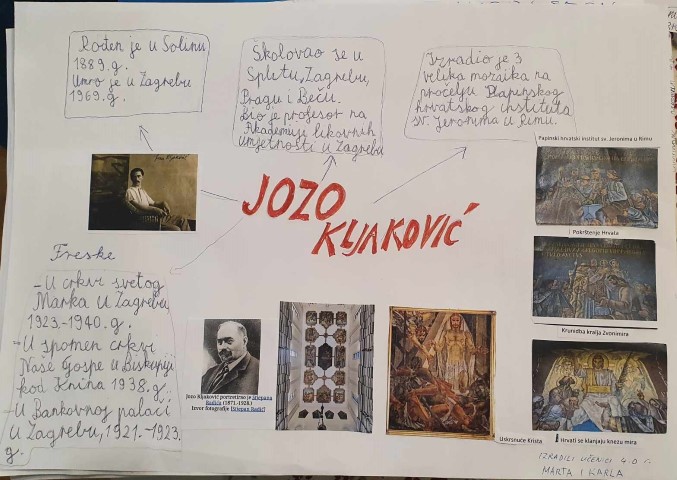 Rođen je u Solinu
1889.g.
Umro je u Zagrebu
1969.g.
Školovao se u
Splitu, Zagrebu,
Pragu i Beču.
Bio je profesor na
Akademiji likovnih
umjetnosti u Zagrebu
Izradio je 3
velika mozaika na
pročelju Papinskog
hrvatskog instituta
sv. Jeronima u Rimu.
JOZO
KLJAKOVIĆ
Papinski hrvatski institut sv. Jeronima u Rimu
Pokrštenje Hrvata
Krunidba kralja Zvonimira
Freske
- U crkvi svetog
Marka u Zagrebu
1923.-1940.g.
- U spomen crkvi
Naše Gospe u Biskupiji
kod Knina 1938.g.
- U Bankovnoj palači
u Zagrebu, 1921.-1923.
g.
Jozo Kljaković portretirao je Stjepana
Radića (1871.-1928.)
Izvor fotografije [Stjepan Radić]
Uskrsnuće Krista
Hrvati se klanjaju knezu mira
IZRADILI UČENICI 4.o r.
MARTA I KARLA